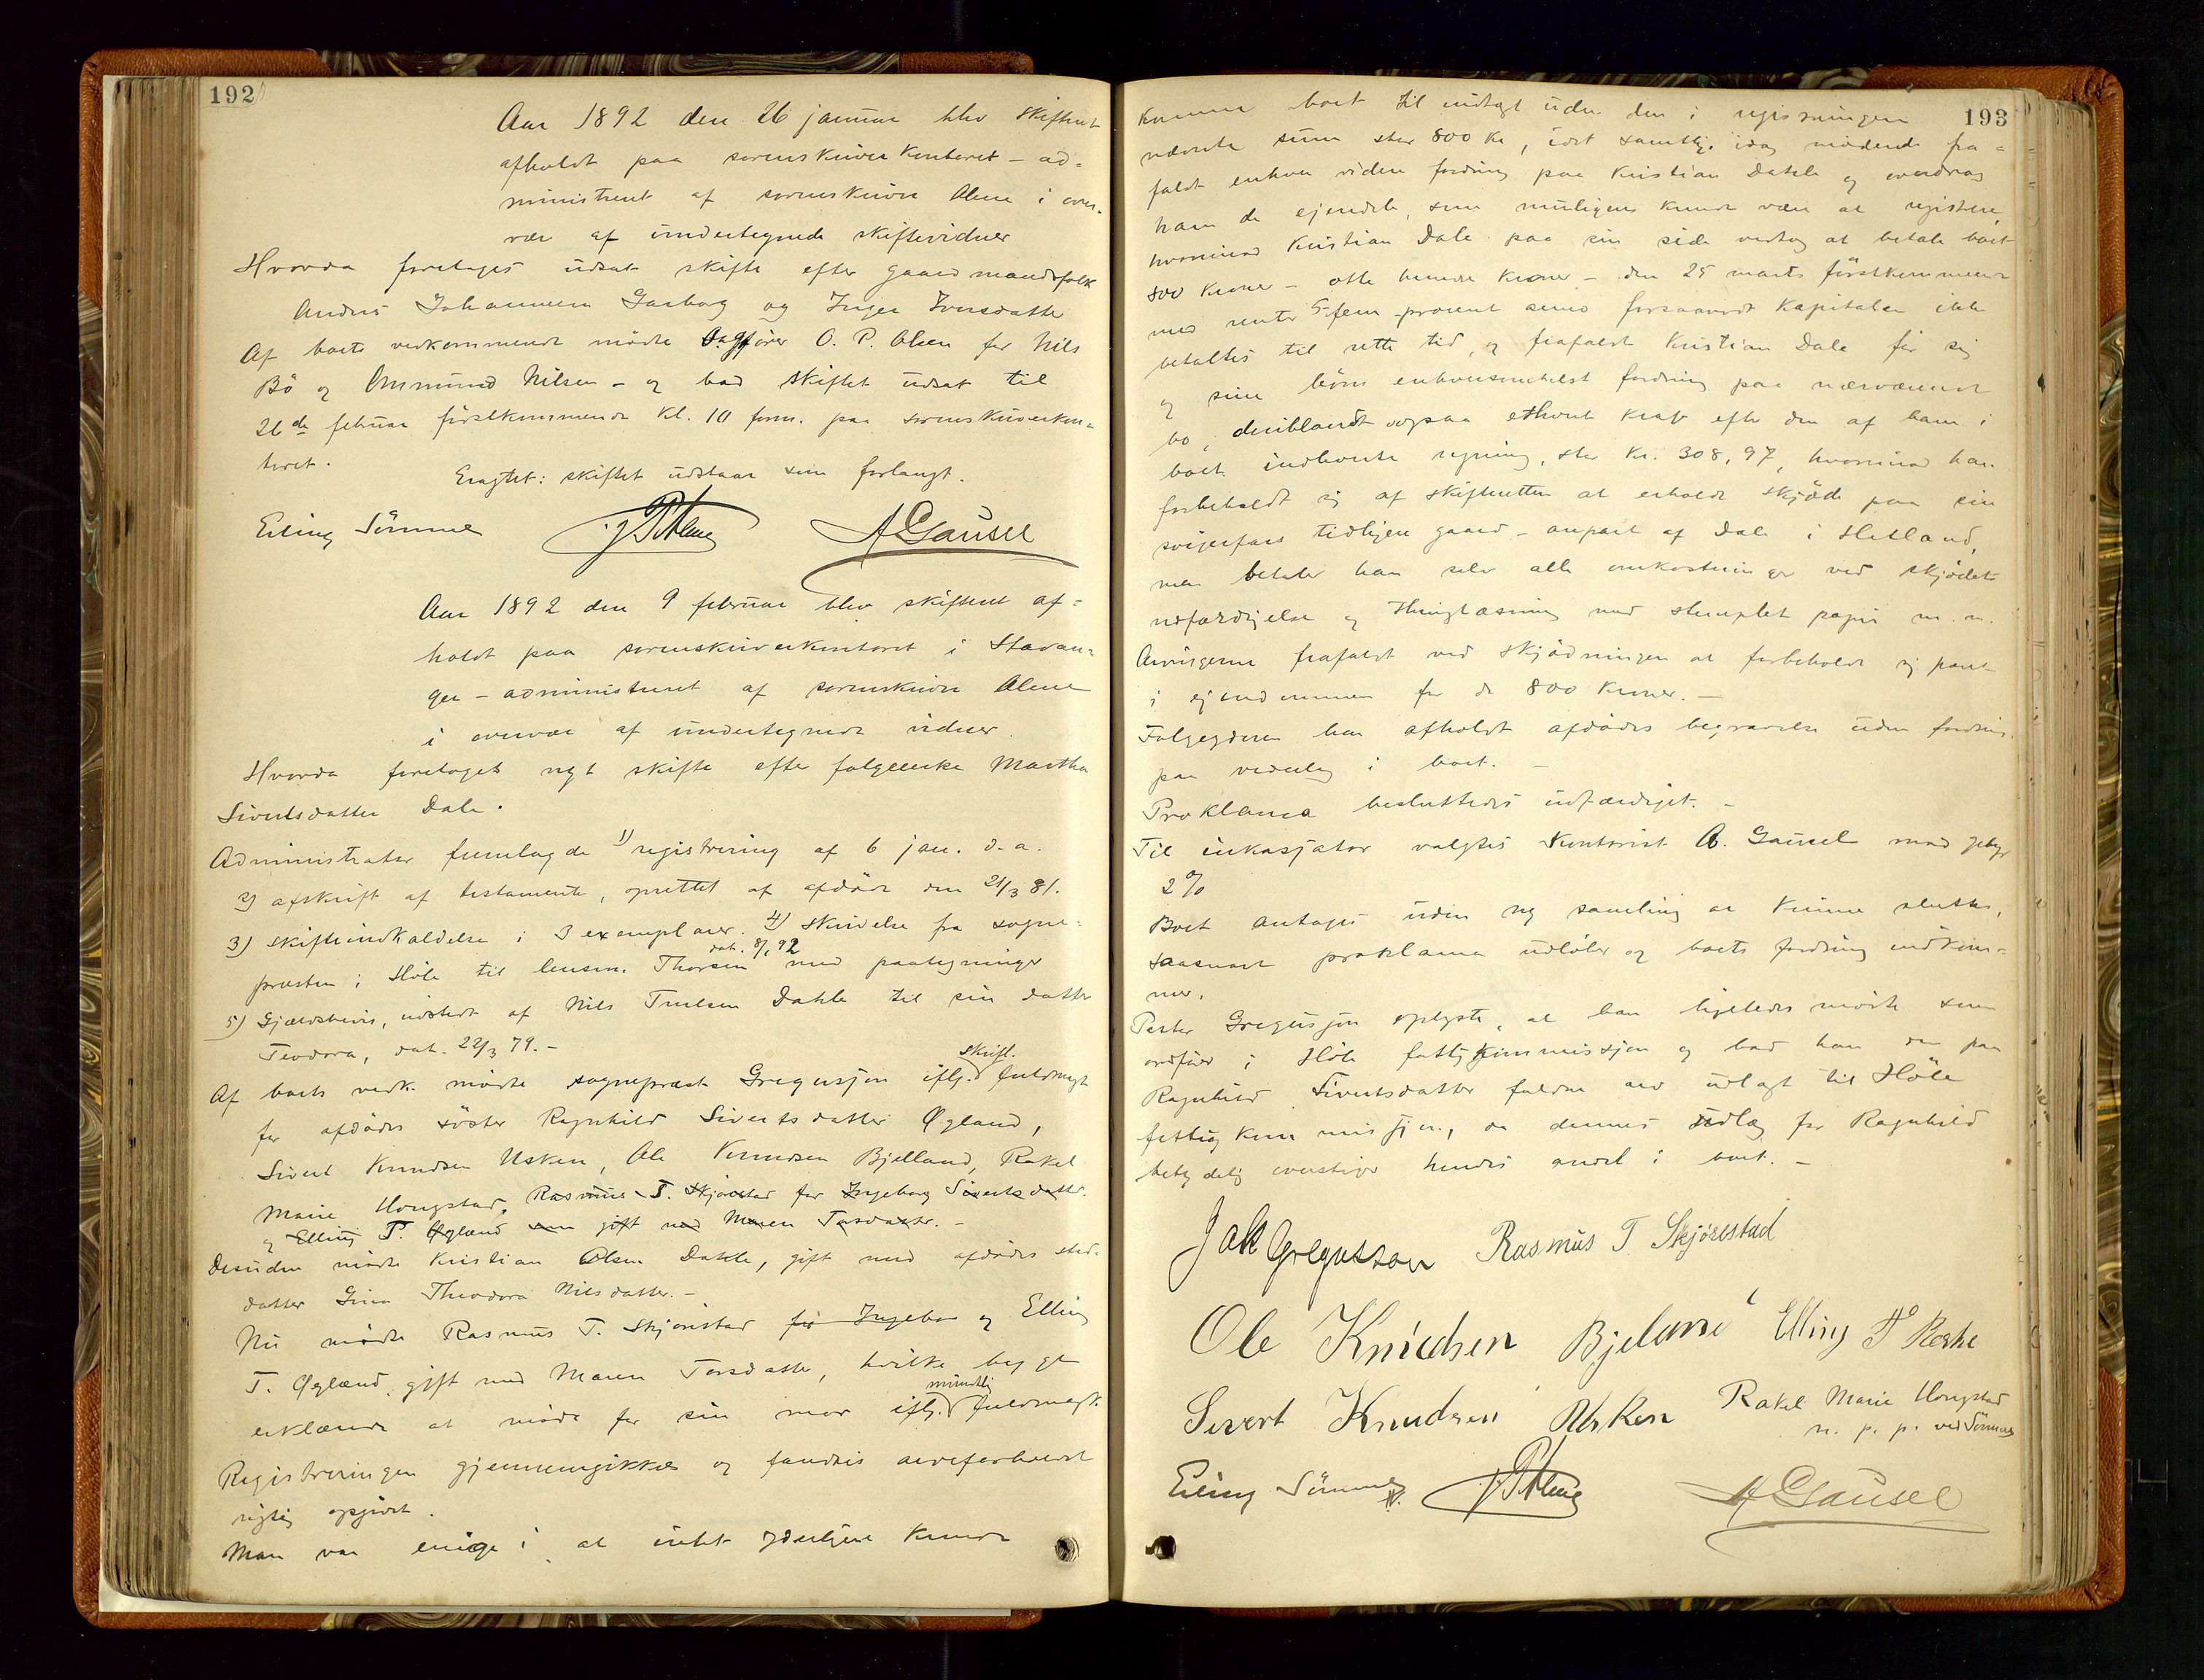 192
Aar 1892 den 26 januar blev skifteret
afholdt paa sorenskriverkontoret - ad=
ministreret af sorenskriver Alme i over-
vær af undertegnede skiftevidner
Hvorda foretoges udsat skifte efter gaardmandsfolk
Andris Johannesen Garborg og Inger Iversdatter
Af boets vedkommende mødte Sagfører O. P. Olsen for Nils
Bö og Ommund Nilsen - og bad skiftet udsat til
26de februar förstkommende kl. 10 form. paa sorenskriverkon=
toret.
Eragtet: skiftet udstaar som forlangt.
Erling Sömme JPAlme AGausel
Aar 1892 den 9 februar blev skifteret af=
holdt paa sorenskriverkontoret i Stavan=
ger - administreret af sorenskriver Alme
i overvær af undertegnede vidner.
Hvorda foretoges nyt skifte efter følgeenke Martha
Sivertsdatter Dale.
Administrator fremlagde 1) registrering af 6 jan. d.a.
2) afskrift af testamente, oprettet af afdöde den 21/3 81.
3) skifteindkaldelse i 3 exemplarer. 4) skrivelse fra sogne=
dat. 8/1 92
præsten i Höle til lensm. Thorsen med paategninger
5) Gjældsbevis, udstedt af Nils Truelsen Dahle til sin datter
Teodora, dat. 22/3 79.-
skriftl.
Af boets vedk. mödte sogneprest Gregusson iflg. fuldmagt
for afdödes söster Ragnhild Sivertsdatter Øgland,
Sivert Knudsen Usken, Ole Knudsen Bjelland, Rakel
Marie Hougstad, Rasmus T. Skjörestad for Ingeborg Sivertsdatter.
og Elling T. Øgland som gift med Maren Tarsdatter. -
Desuden mödte Kristian Olsen Dahle, gift med afdödes sted=
datter Gina Theodora Nilsdatter.-
Nu mödte Rasmus T. Skjörestad for Ingebor og Elling
T. Øgland, gift med Maren Torsdatter, hvilke begge
mundtlig
erklærede at möde for sin mor iflg. fuldmagt.
Registreringen gjennemgikkes og fandtes arveforholdet
rigtig opgivet.
Man var enige i at intet yderligere kunde
193
komme boet til indtægt uden den i registreringen
nævnte sum stor 800 kr, idet samtlige idag mödende fra=
faldt enhver videre fordring paa Kristian Dahle og overdrog
ham de ejendele, som muligens kunde være at registrere,
hvorimod Kristian Dale paa sin side vedtog at betale boet
800 kroner - otte hundre kroner - den 25 marts förstkommende
med renter 5 fem procent senes forsaavidt kapitalen ikke
betaltes til rette tid, og frafaldt Kristian Dale for sig
og sine börn enhversomhelst fordring paa nærværende
bo, deriblandt ogsaa ethvert krav efter den af ham i
boet indleverte regning, stor kr. 308,97, hvorimod han
forbeholdt sig af skifteretten at erholde skjöde paa sin
svigerfars tidligere gaard - anpart af Dale i Hetland,
men betaler han selv alle omkostninger ved skjödets
udfærdigelse og thinglæsning med stemplet papir m. m.
Arvingerne frafaldt ved skjödningen at forbeholde sig pant
i ejendommen for de 800 kroner. -
Følgegderen har afholdt afdödes begravelse uden fordring
paa vederlag i boet. -
Proklama besluttedes udfærdiget. -
Til inkasjator valgtes Kontorist A. Gausel mod gebyr
2 %
Boet antages uden ny samling at kunne sluttes,
saasnart proklama udlöber og boets fordring indkom=
mer.
Pastor Gregusson oplyste, at han ligeledes mödte som
ordförer i Höle fattigkommissjon og bad han den paa
Ragnhild Sivertsdatter faldne arv udlagt til Höle
fattigkommissjon, da dennes udlæg for Ragnhild
betydelig overstiger hendes andel i boet. -
Jak Gregusson Rasmus T. Skjörestad
Ole Knudsen Bjeland Elling T
Sivert Knudsen Usken Rakel Marie Hougstad
m. p. p. ved Sömme
Erling Sömme JPAlme AGausel